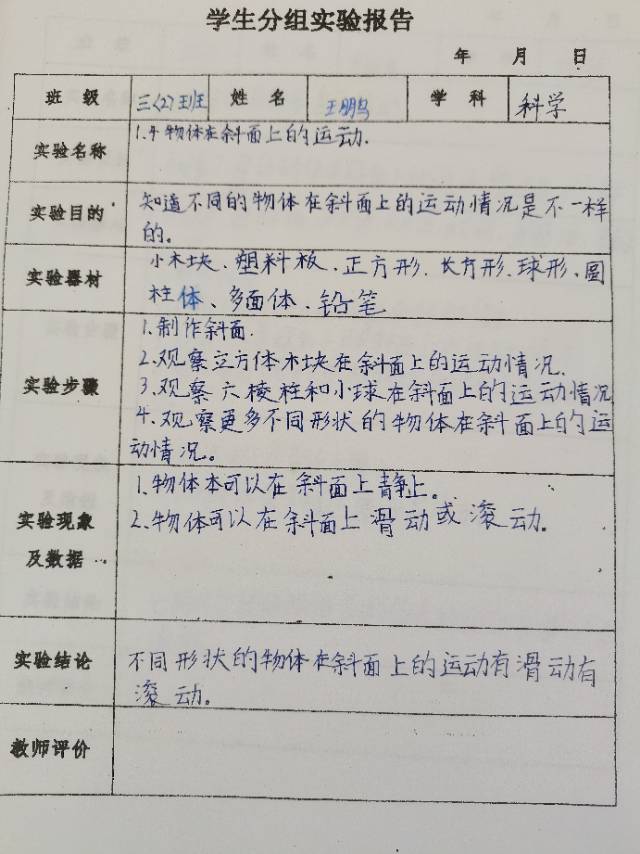 学生分组实验报告
年 月 日
班 级 三(2)班 姓 名 王鹏鸟 学 科 科学
实验名称 1.4物体在斜面上的运动.
实验目的 知道不同的物体在斜面上的运动情况是不一样
的。
实验器材 小木块、塑料板、正方形、长方形、球形、圆
柱体、多面体、铅笔
实验步骤 1.制作斜面.
2.观察立方体木块在斜面上的运动情况.
3.观察六棱柱和小球在斜面上的运动情况
4.观察更多不同形状的物体在斜面上的运
动情况。
实验现象及数据 1.物体本可以在斜面上静止。
2.物体可以在斜面上滑动或滚动.
实验结论 不同形状的物体在斜面上的运动有滑动有
滚动。
教师评价